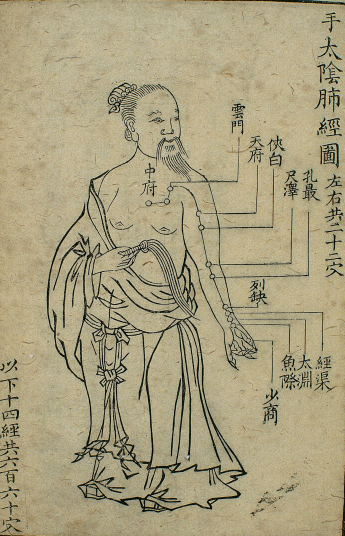 手太陰肺經圖
左右共二十二穴
雲門
天府
俠白
尺澤
孔最
中府
列缺
經渠
太淵
魚際
少商
以下十四經共六百六十穴